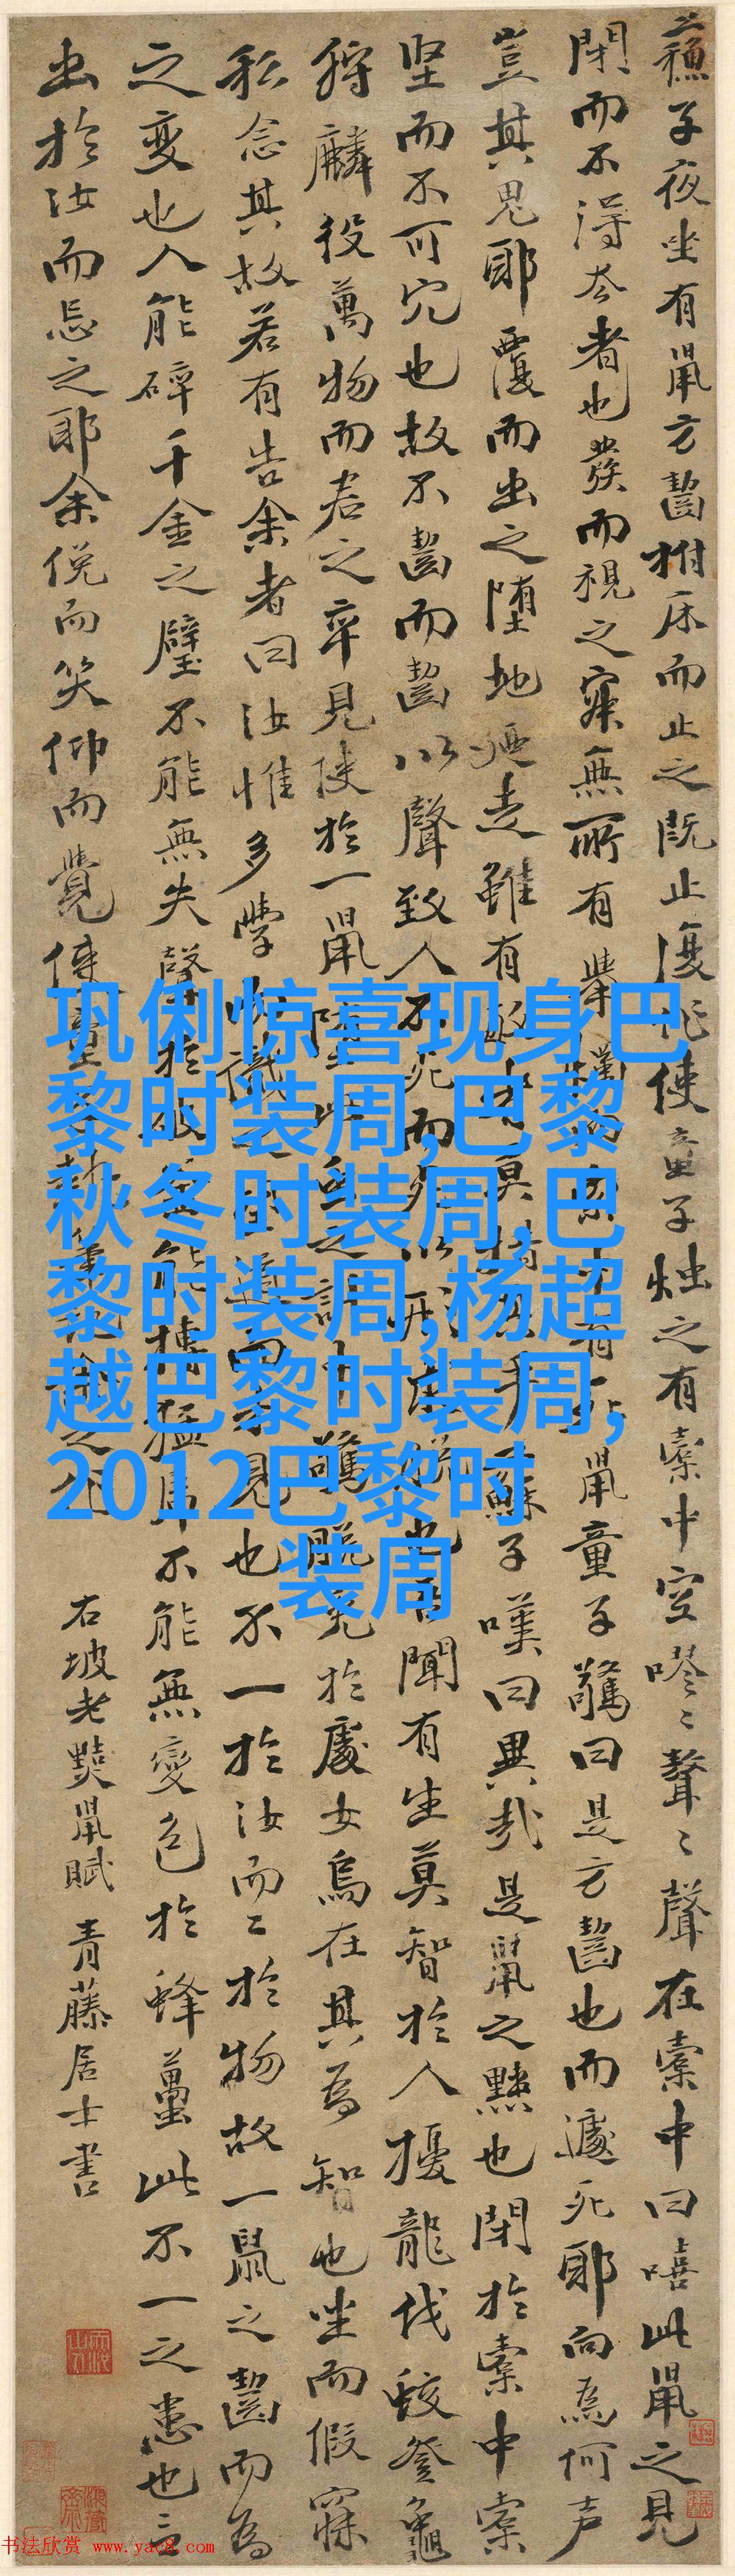 蘓子夜坐有鼠方齧拊床而止之既止復作使童子燭之有橐中空嘐〻聱〻聲在橐中曰嘻此鼠之見
閉而不得去者也發而視之寂無所有舉燭而索中有死鼠童子驚曰是方齧也而遽死耶向為何声
豈其鬼耶覆而出之墮地廼走雖有敏者莫措其手蘇子嘆曰異哉是鼠之黠也閉於橐中橐
坚而不可穴也故不齧而齧以聲致人不死而死以形求脫也吾聞有生莫智於人擾龍伐蛟登龜
狩麟役萬物而君之卒見使於一鼠墮此蟲之計中驚脫兔於處女烏在其為智也坐而假寐
私念其故若有告余者曰汝惟多學而識之望道而未見也不一於汝而二於物故一鼠之齧而為
之變也人能碎千金之璧不能無失聲於破釜能搏猛虎不能無變色於蜂蠆此不一之患也言
出於汝而忘之耶余俛而笑仰而覺使童子執筆記余之作
右坡老黠鼠賦 青藤居士書
巩俐惊喜现身巴
黎时装周,巴黎
秋冬时装周,巴
黎时装周,杨超
越巴黎时装周,
2012巴黎时
装周
书法欣赏 www.yac8.com